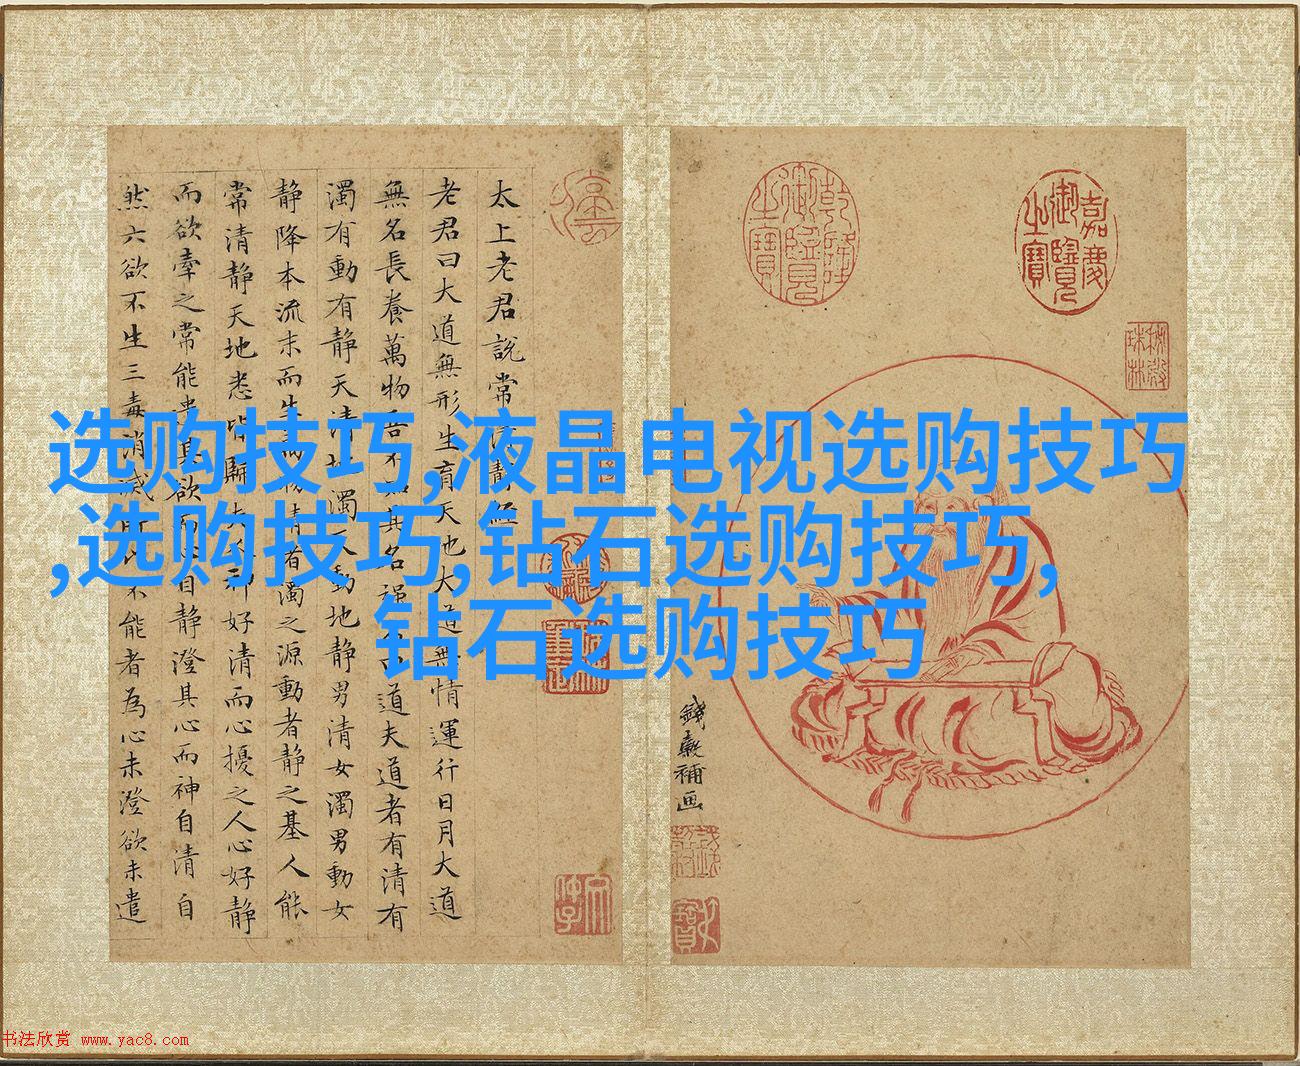 选购技巧,液晶电视选购技巧
,选购技巧,钻石选购技巧,
钻石选购技巧
太上老君說常清靜經
老君曰大道無形生育天地大道無情運行日月大道
無名長養萬物吾不知其名強名曰道夫道者有清有
濁有動有靜天清地濁天動地靜男清女濁男動女
靜降本流末而生萬物清者濁之源動者靜之基人能
常清靜天地悉皆歸夫人神好清而心擾之人心好靜
而欲牽之常能遣其欲而心自靜澄其心而神自清自
然六欲不生三毒消滅所以不能者為心未澄欲未遣
乾隆御覽之寶
嘉慶御覽之寶
秘殿珠林
錢穀補画
书法欣赏 www.yac8.com